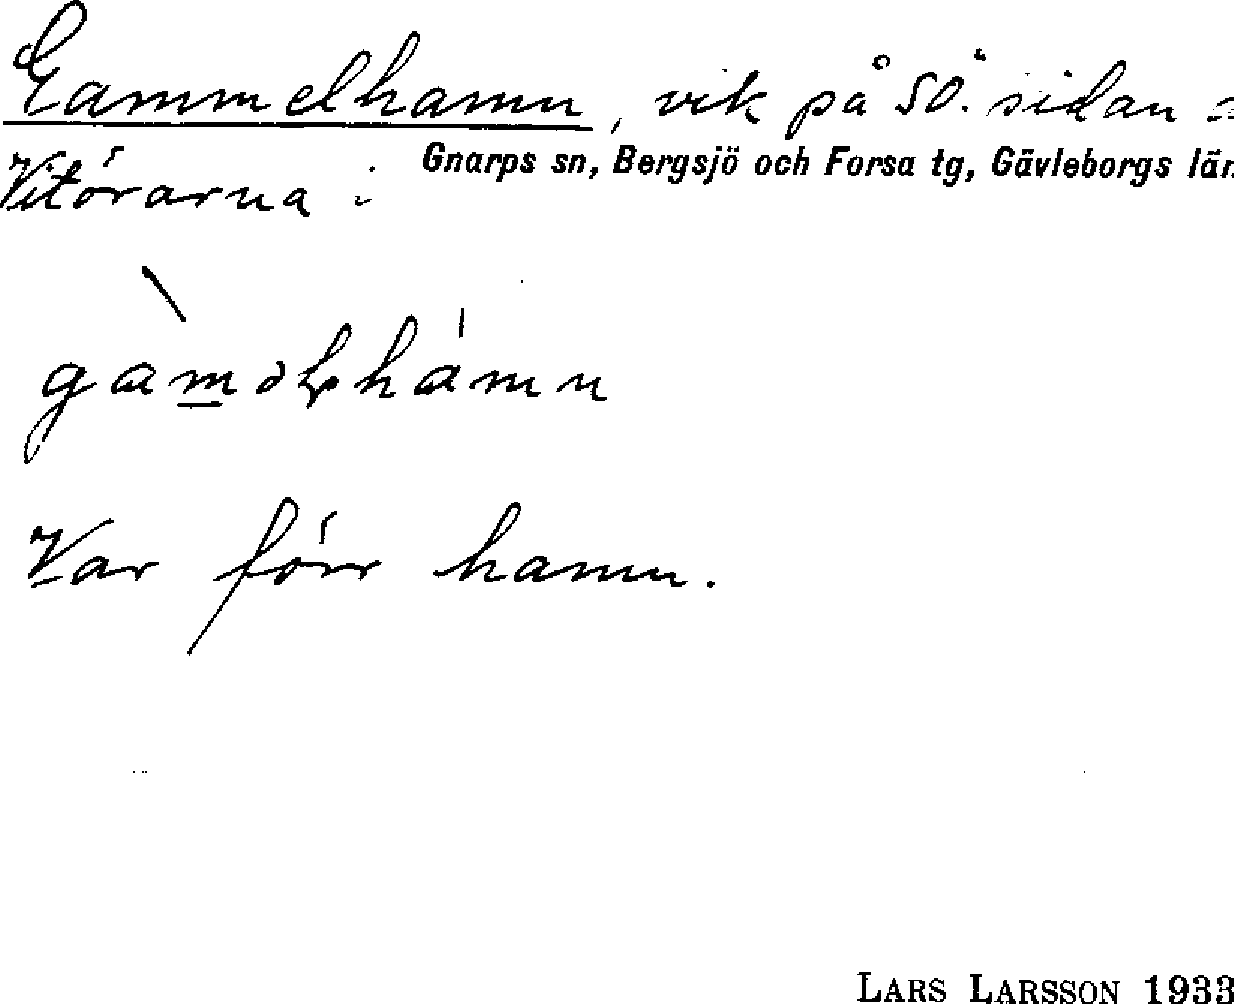 Gammelhamn, vik på SO. sidan
Gnarps sn, Bergsjö och Forsa tg, Gävleborgs län
Vitörarna:
gàməlhámn
Var förr hamn.
LARS LARSSON 1933